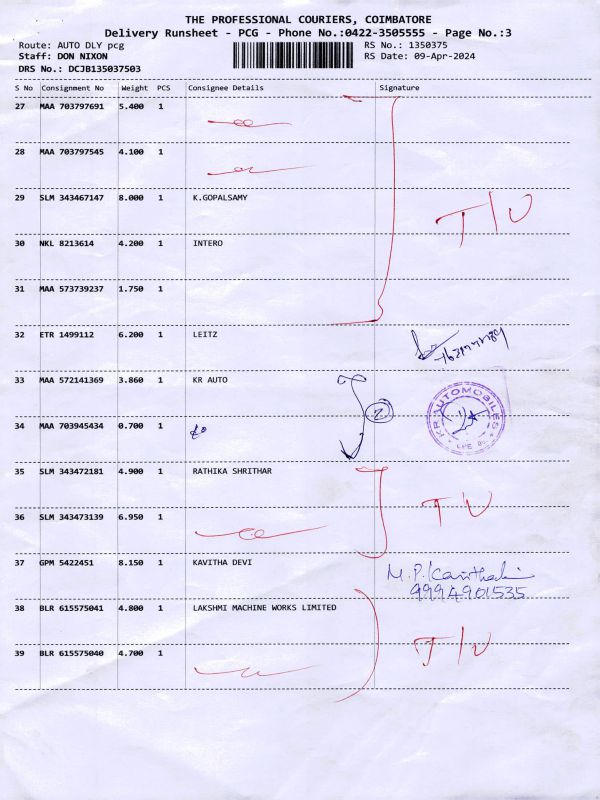 THE PROFESSIONAL COURIERS, COIMBATORE
Delivery Runsheet - PCG - Phone No.:0422-3505555 - Page No.:3
Route: AUTO DLY pcg RS No.: 1350375
Staff: DON NIXON RS Date: 09-Apr-2024
DRS No.: DCJB135037503
S No Consignment No Weight PCS Consignee Details Signature
27 MAA 703797691 5.400 1
28 MAA 703797545 4.100 1
29 SLM 343467147 8.000 1 K.GOPALSAMY
T/U
30 NKL 8213614 4.200 1 INTERO
31 MAA 573739237 1.750 1
32 ETR 1499112 6.200 1 LEITZ
33 MAA 572141369 3.860 1 KR AUTO
2
KR AUTOMOBILES
34 MAA 703945434 0.700 1
35 SLM 343472181 4.900 1 RATHIKA SHRITHAR
T U
36 SLM 343473139 6.950 1
37 GPM 5422451 8.150 1 KAVITHA DEVI
M.P.
9994901535
38 BLR 615575041 4.800 1 LAKSHMI MACHINE WORKS LIMITED
T/U
39 BLR 615575040 4.700 1